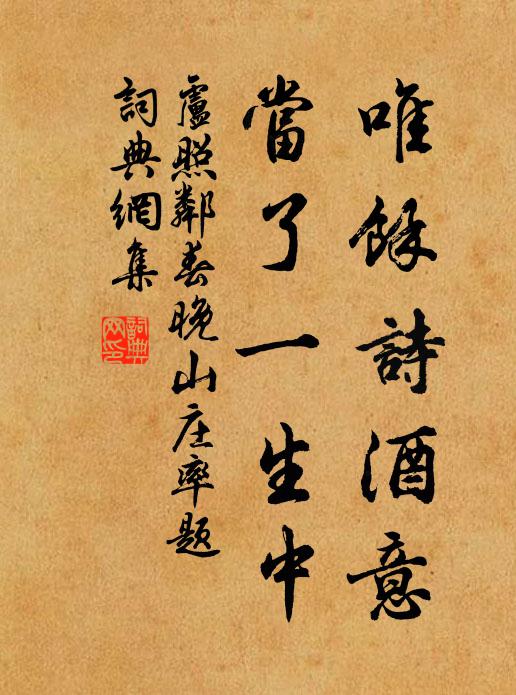 唯餘詩酒意
當了一生中
盧照鄰春晚山庄率題
詞典網集
詞典
网印